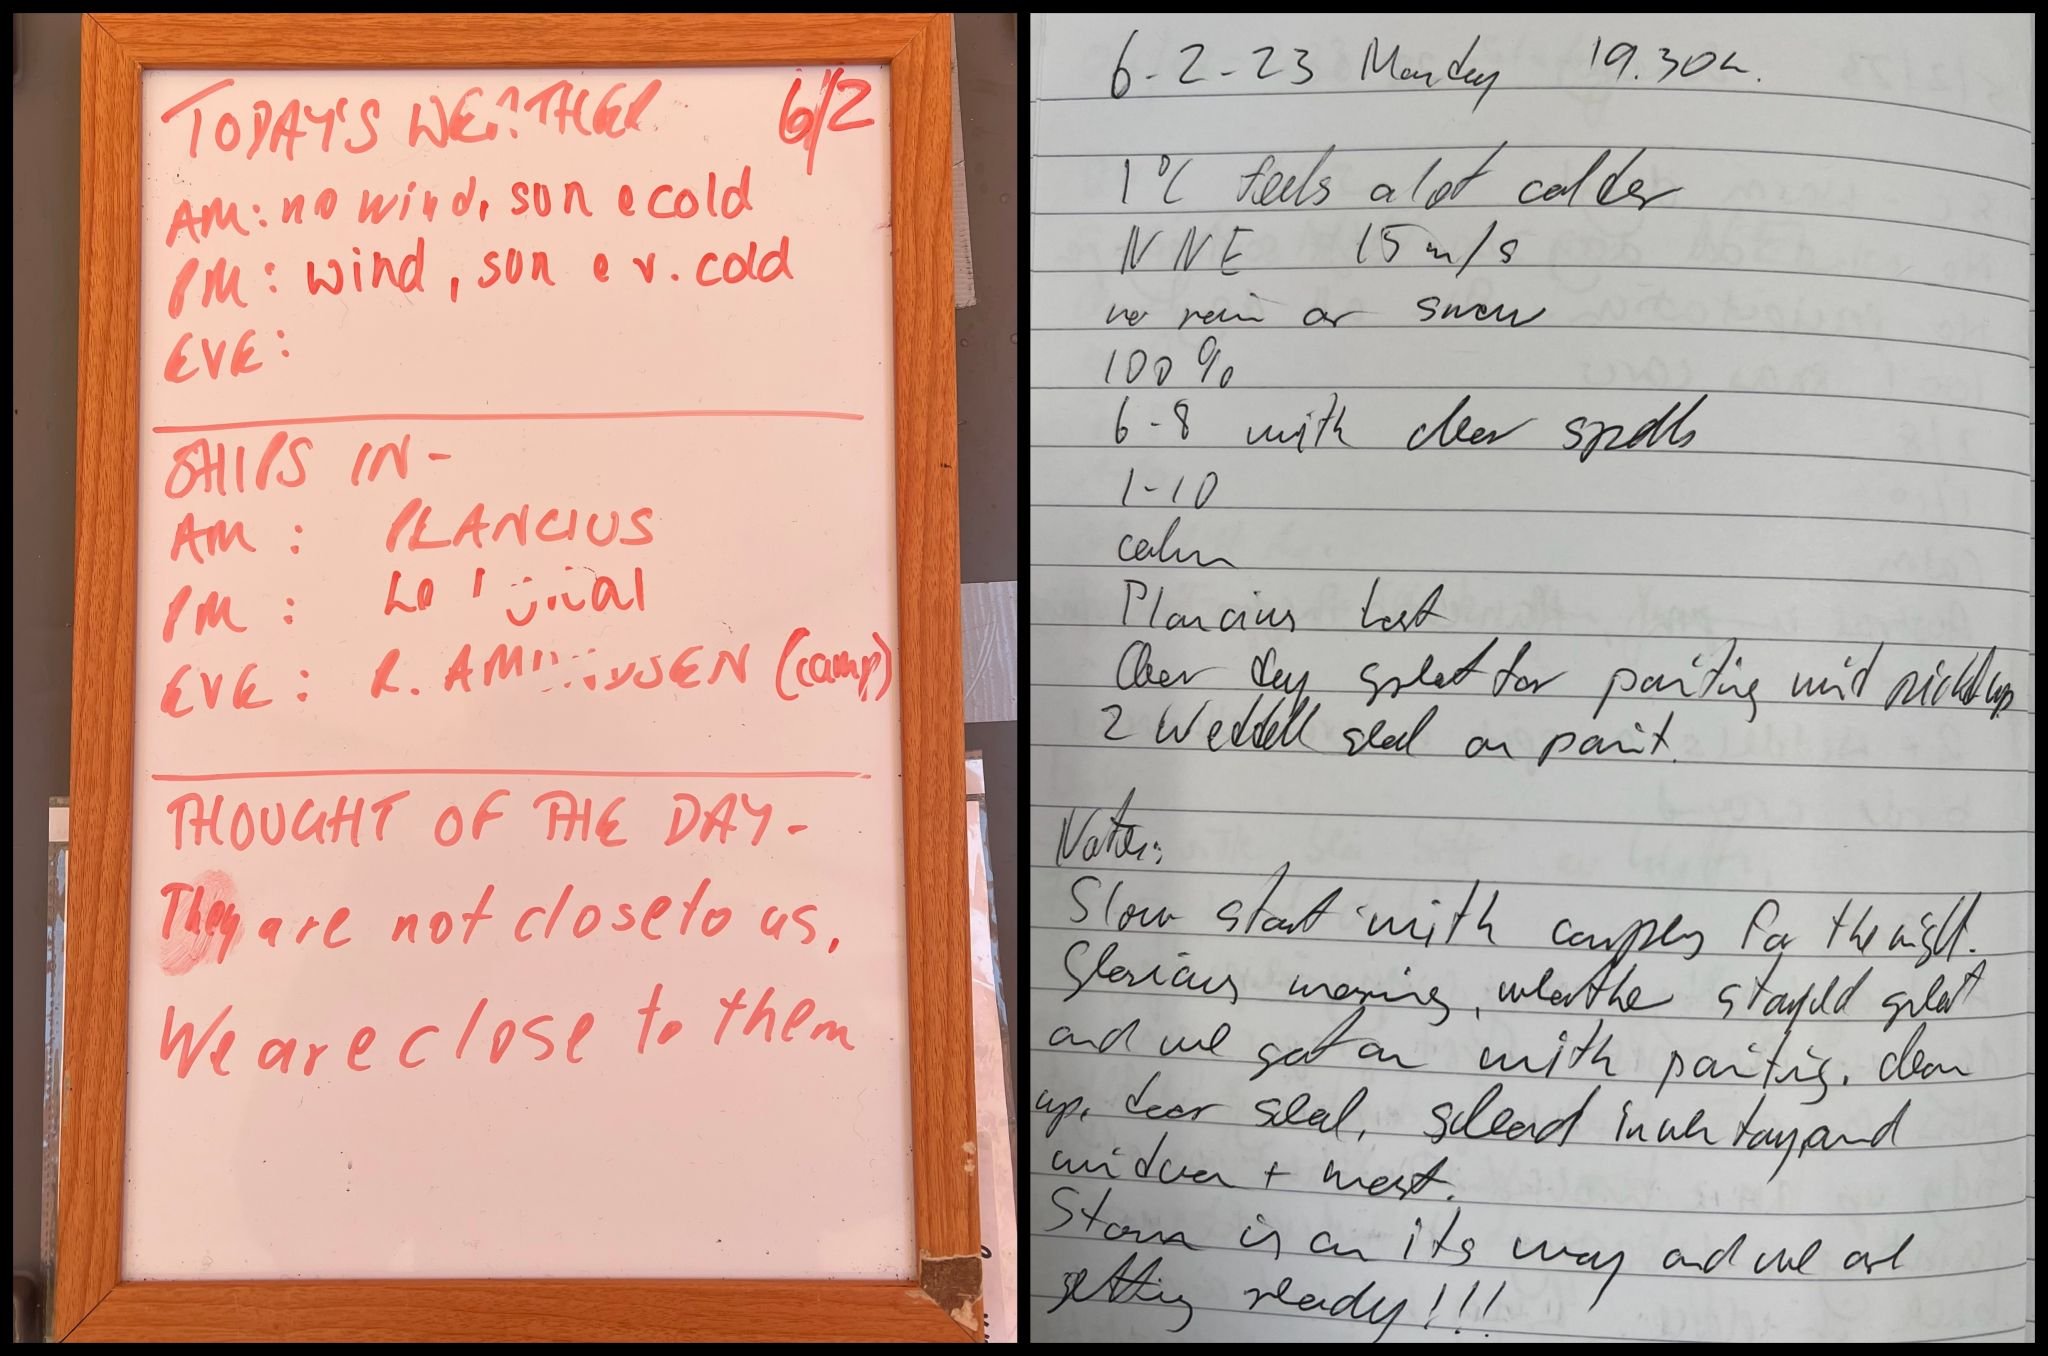 TODAY'S WEATHER 6/2
AM: no wind, sun e cold
PM: wind, sun e v. cold
EVE:
SHIPS IN -
AM: PLANCIUS
PM:
EVE: R. AMUNDSEN (camp)
THOUGHT OF THE DAY -
They are not close to us,
We are close to them
6-2-23 Monday 19.30h.
1°C feels a lot colder
NNE 15 m/s
no rain or snow
100%
6-8 with clear spells
1-10
calm
Plancius
Clear day great for painting
2 Weddell seal on point.
Notes:
Slow start with campers for the night.
Glorious morning, weather stayed great
and we got on with painting, clean
up, door seal, and
+ mast.
Storm is on its way and we are
getting ready!!!